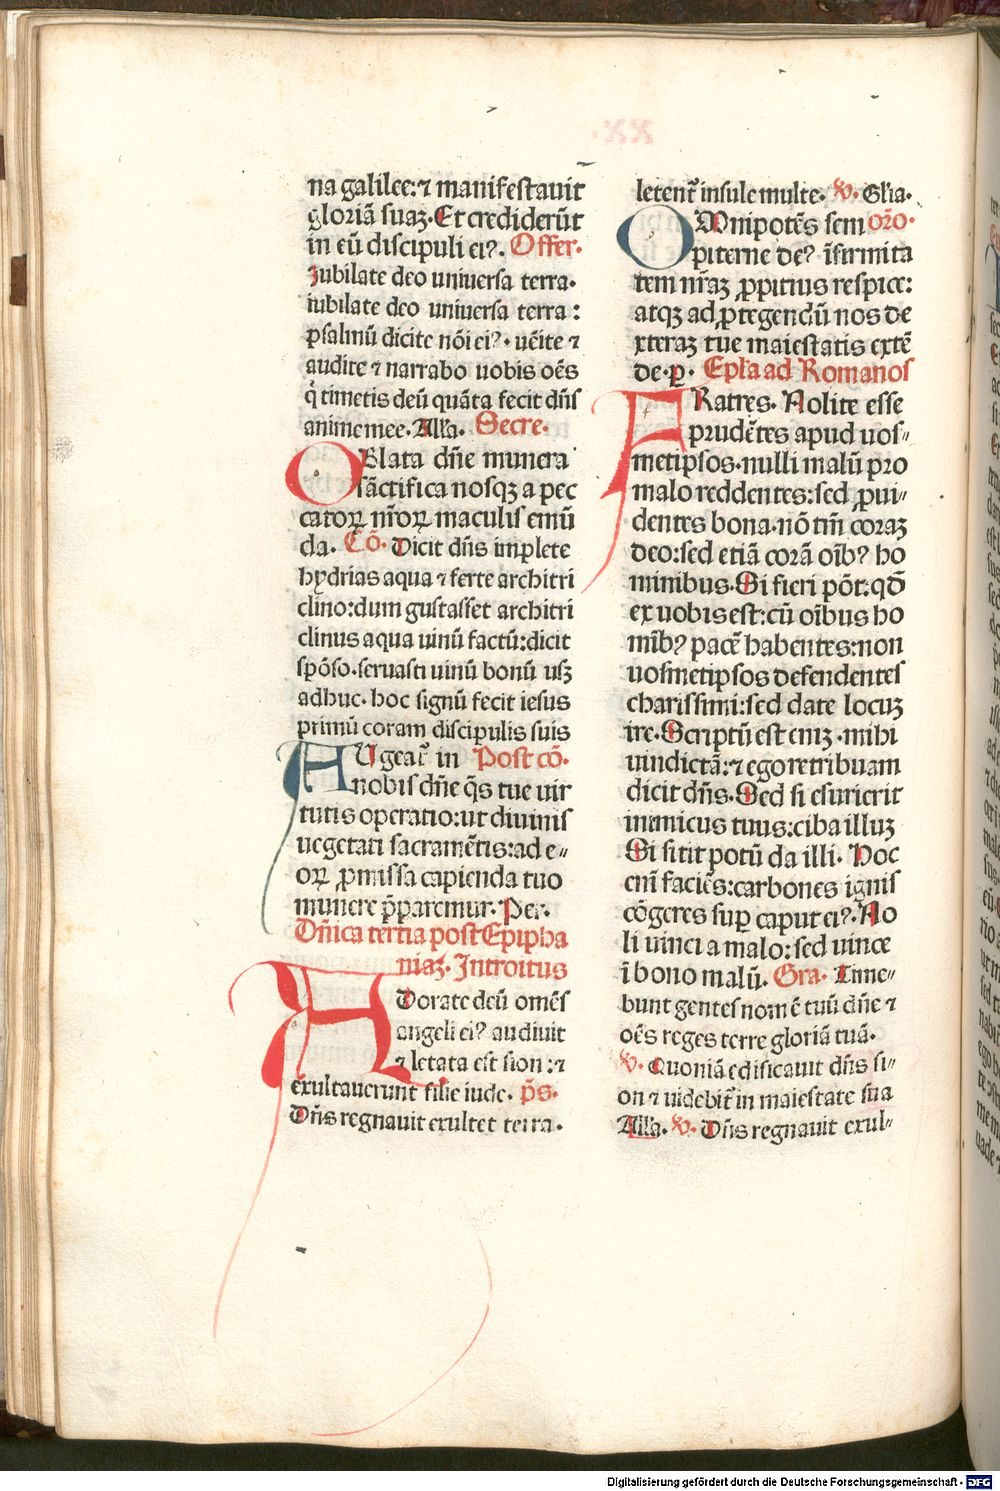 na galilee: ⁊ manifestauit
gloriā suaꝫ. Et crediderūt
in eū discipuli eiꝰ. Offer.
Iubilate deo uniuersa terra.
iubilate deo uniuersa terra:
psalmū dicite nōi eiꝰ. uēite ⁊
audite ⁊ narrabo uobis oēs
q̇ timetis deū quāta fecit dn̄s
anime mee. Alla. Secre.
OBlata dn̄e munera
sāctifica nosqꝫ a pec
catoꝝ nr̄oꝝ maculis emū
da. Cō. Dicit dn̄s implete
hydrias aqua ⁊ ferte architri
clino: dum gustasset architri
clinus aqua uinū factū: dicit
spōso. seruasti uinū bonū usꝫ
adhuc. hoc signū fecit iesus
primū coram discipulis suis
AUgeat᷑ in Post cō.
nobis dn̄e q̄s tue uir
tutis operatio: ut diuinis
uegetati sacramētis: ad e〃
oꝝ ꝓmissa capienda tuo
munere p̄paremur. Per.
Dn̄ica tertia post Epipha
niaꝫ. Introitus
ADorate deū omēs
angeli eiꝰ audiuit
⁊ letata est sion: ⁊
exultauerunt filie iude. p̄s.
Dn̄s regnauit exultet terra.
letent᷑ insule multe. ℣. Gl̄ia.
OMnipotēs sem or̄o.
piterne deꝰ īfirmita
tem nr̄aꝫ ꝓpitius respice:
atqꝫ ad ꝓtegendū nos de
xteraꝫ tue maiestatis extē
de. ꝑ. Epl̄a ad Romanos
FRatres. Nolite esse
prudētes apud uos〃
metipsos. nulli malū pro
malo reddentes: sed ꝓui〃
dentes bona. nō tm̄ coraꝫ
deo: sed etiā corā oībꝰ ho
minibus. Si fieri pōt: qd̄
ex uobis est: cū oībus ho
mībꝰ pacē habentes: non
uosmetipsos defendentes
charissimi: sed date locuꝫ
ire. Scriptū est eniꝫ. mihi
uindictā: ⁊ ego retribuam
dicit dn̄s. Sed si esurierit
inimicus tuus: ciba illuꝫ
Si sitit potū da illi. Hoc
enī faciēs: carbones ignis
cōgeres suꝑ caput eiꝰ. No
li uinci a malo: sed uince
ī bono malū. Gra. Time〃
bunt gentes nomē tuū dn̄e ⁊
oēs reges terre gloriā tuā.
℣. Quoniā edificauit dn̄s si〃
on ⁊ uidebit᷑ in maiestate sua
Alla. ℣. Dn̄s regnauit exul〃
Digitalisierung gefördert durch die Deutsche Forschungsgemeinschaft - DFG